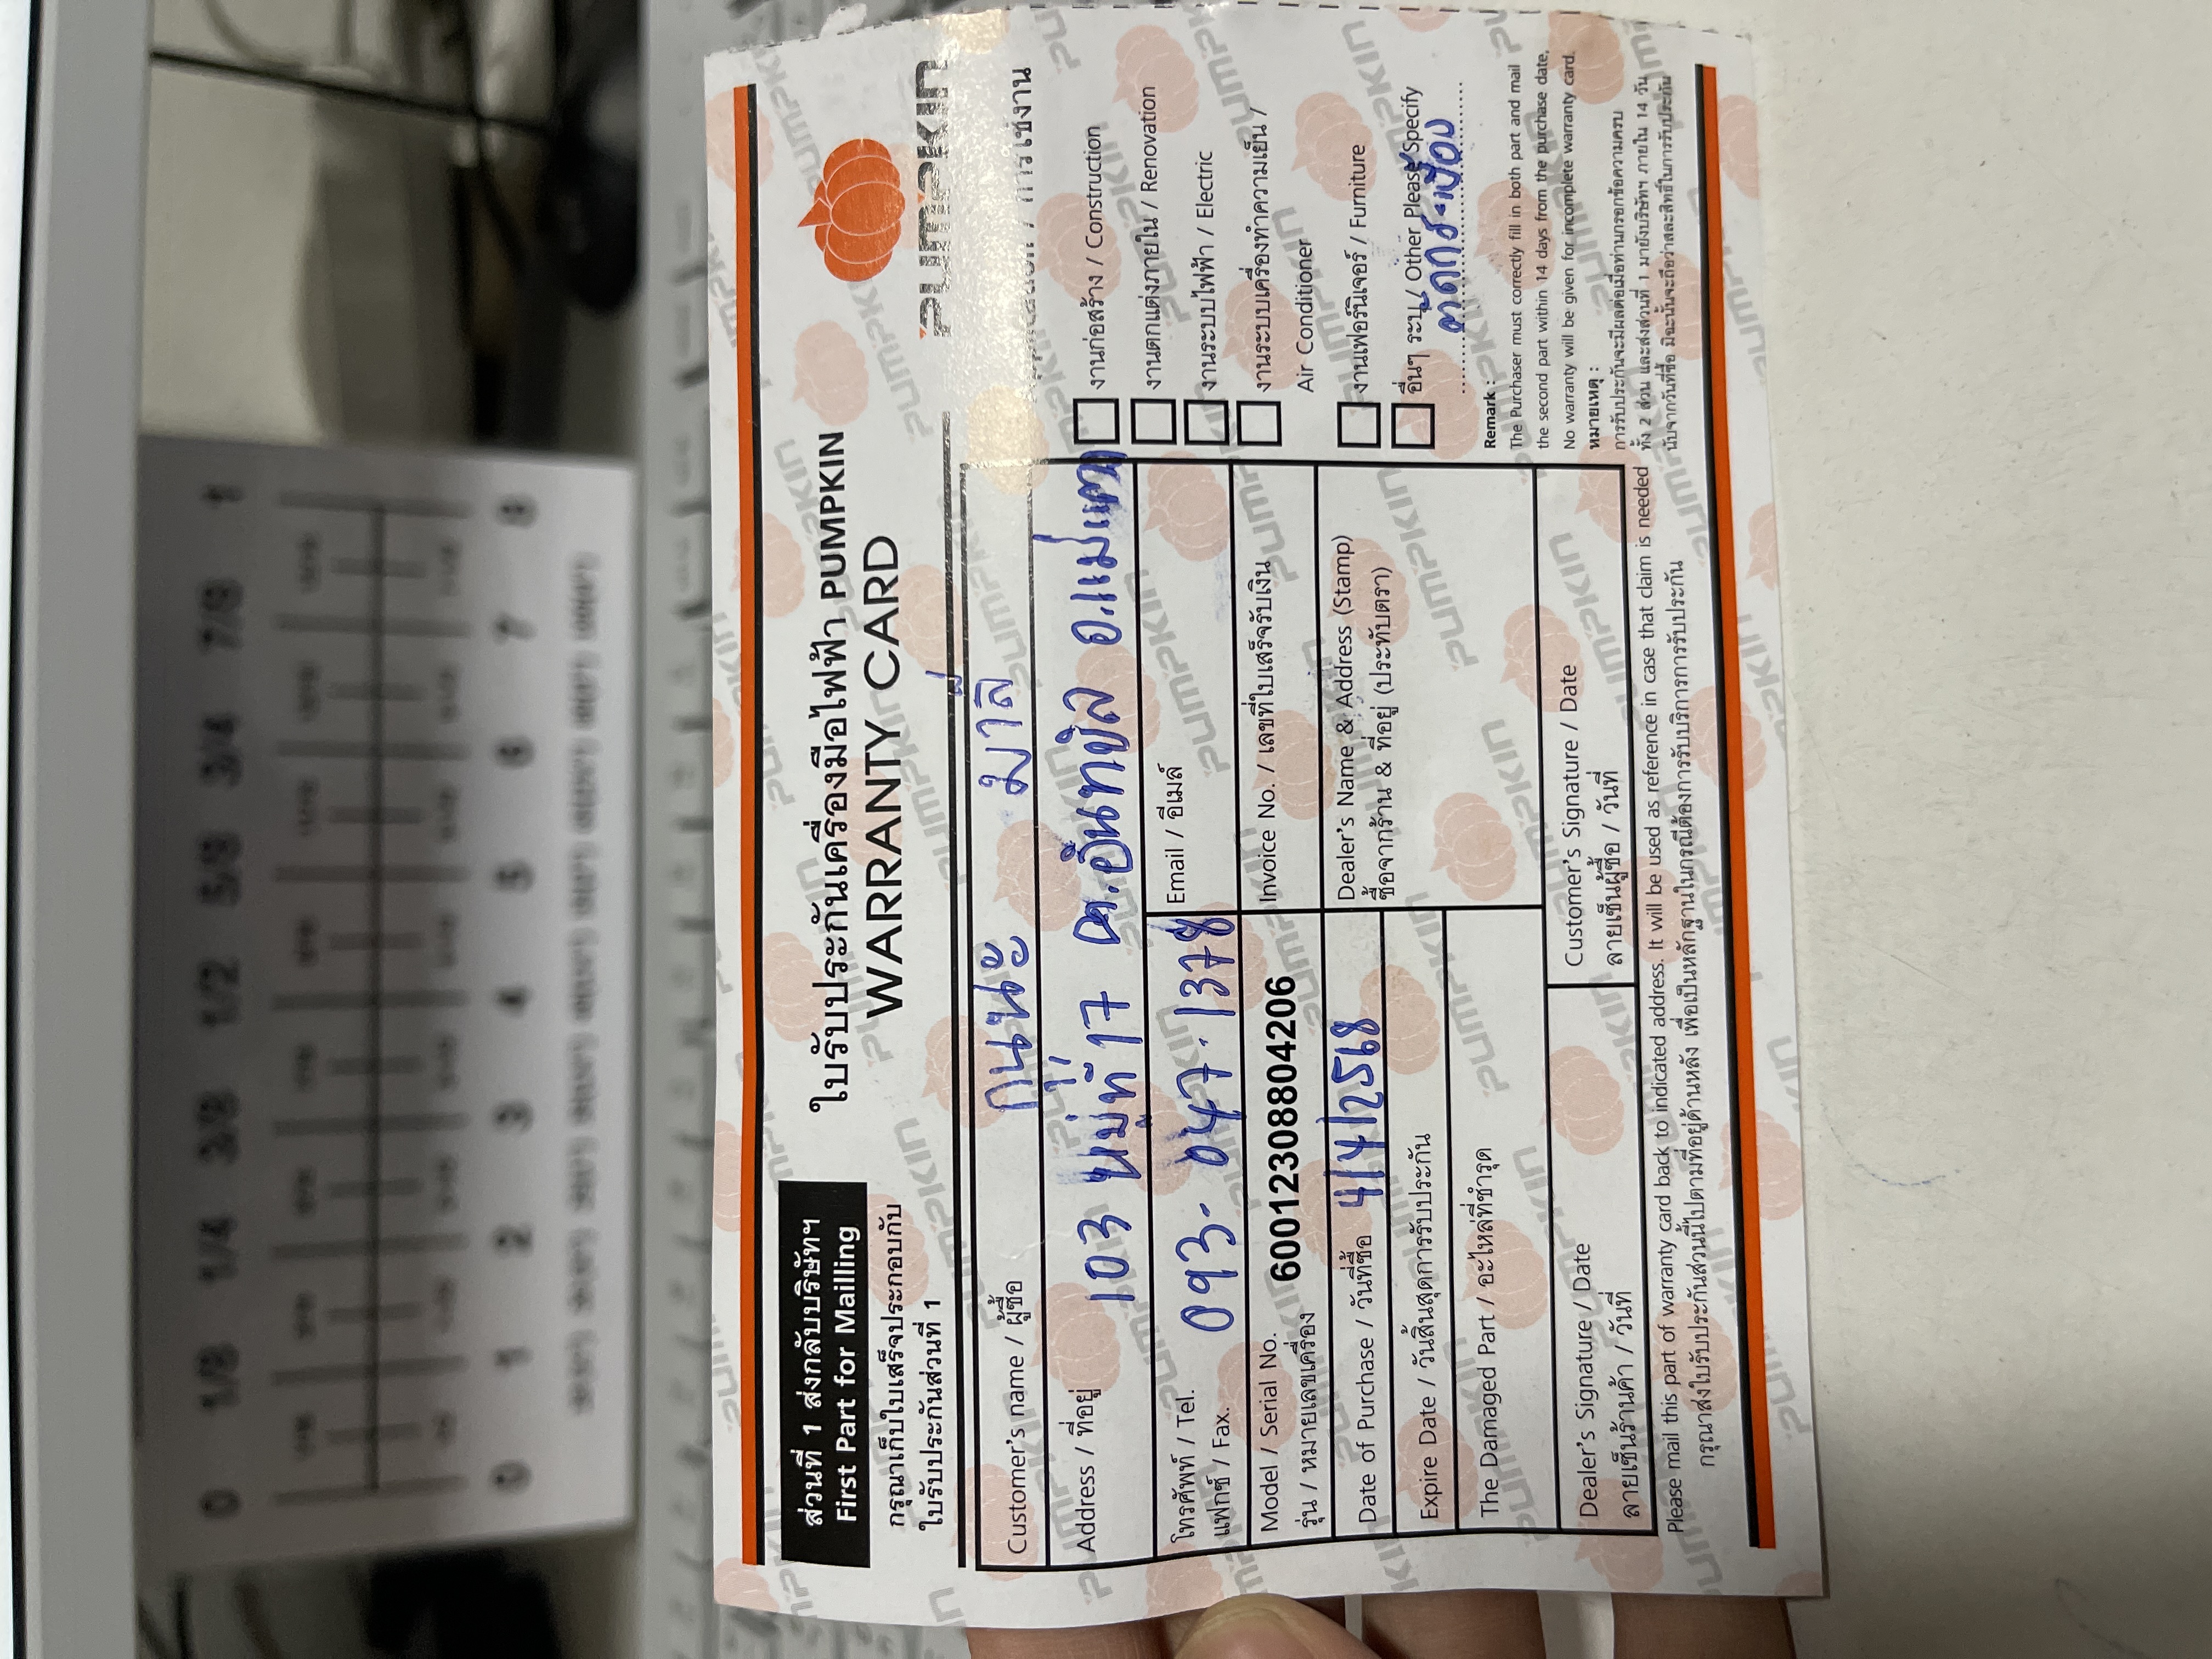 ส่วนที่ 1 ส่งกลับบริษัทฯ
First Part for Mailling
กรุณาเก็บใบเสร็จประกอบกับ
ใบรับประกันส่วนที่ 1
ใบรับประกันเครื่องมือไฟฟ้า PUMPKIN
WARRANTY CARD
PUMPKIN
Customer's name / ผู้ซื้อ มาลี
Address / ที่อยู่ 103 หมู่ที่ 17 ต.อินทขิล อ.แม่แตง
โทรศัพท์ / Tel. 093-047-1378
แฟกซ์ / Fax.
Email / อีเมล์
Model / Serial No. 60012308804206
รุ่น / หมายเลขเครื่อง
Invoice No. / เลขที่ใบเสร็จรับเงิน
Date of Purchase / วันที่ซื้อ 4/4/2568
Dealer's Name & Address (Stamp)
ซื้อจากร้าน & ที่อยู่ (ประทับตรา)
Expire Date / วันสิ้นสุดการรับประกัน
The Damaged Part / อะไหล่ที่ชำรุด
Dealer's Signature / Date
ลายเซ็นร้านค้า / วันที่
Customer's Signature / Date
ลายเซ็นผู้ซื้อ / วันที่
/ การใช้งาน
งานก่อสร้าง / Construction
งานตกแต่งภายใน / Renovation
งานระบบไฟฟ้า / Electric
งานระบบเครื่องทำความเย็น /
Air Conditioner
งานเฟอร์นิเจอร์ / Furniture
อื่นๆ ระบุ / Other Please Specify
ตัดกระเบื้อง
Remark :
The Purchaser must correctly fill in both part and mail
the second part within 14 days from the purchase date.
No warranty will be given for incomplete warranty card.
หมายเหตุ :
การรับประกันจะมีผลต่อเมื่อท่านกรอกข้อความครบ
ทั้ง 2 ส่วน และส่งส่วนที่ 1 มายังบริษัทฯ ภายใน 14 วัน
นับจากวันที่ซื้อ มิฉะนั้นจะถือว่าสละสิทธิ์ในการรับประกัน
Please mail this part of warranty card back to indicated address. It will be used as reference in case that claim is needed
กรุณาส่งใบรับประกันส่วนนี้ไปตามที่อยู่ด้านหลัง เพื่อเป็นหลักฐานในกรณีต้องการรับบริการการรับประกัน
0 1/8 1/4 3/8 1/2 5/8 3/4 7/8 1
0 1 2 3 4 5 6 7 8